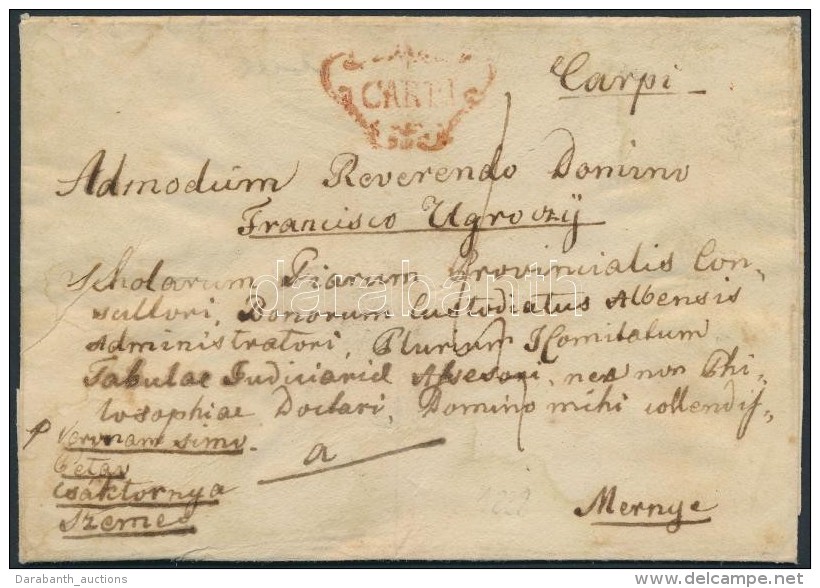 CARPI
Carpi
Admodum Reverendo Domino
Francisco Ugroczÿ
Scholarum Piarum Provincialis Con-
sultori, Bonorum Custodiatus Albensis
Administratori, Plurium I Comitatum
Tabulae Judiciariae Assessori, nec non Phi-
losophiae Doctori, Domino mihi collendiss-
p Veronam simo.
a
Csáktornya
Szemes
Mernye
darabanth
Darabanth_auctions
delcampe.net